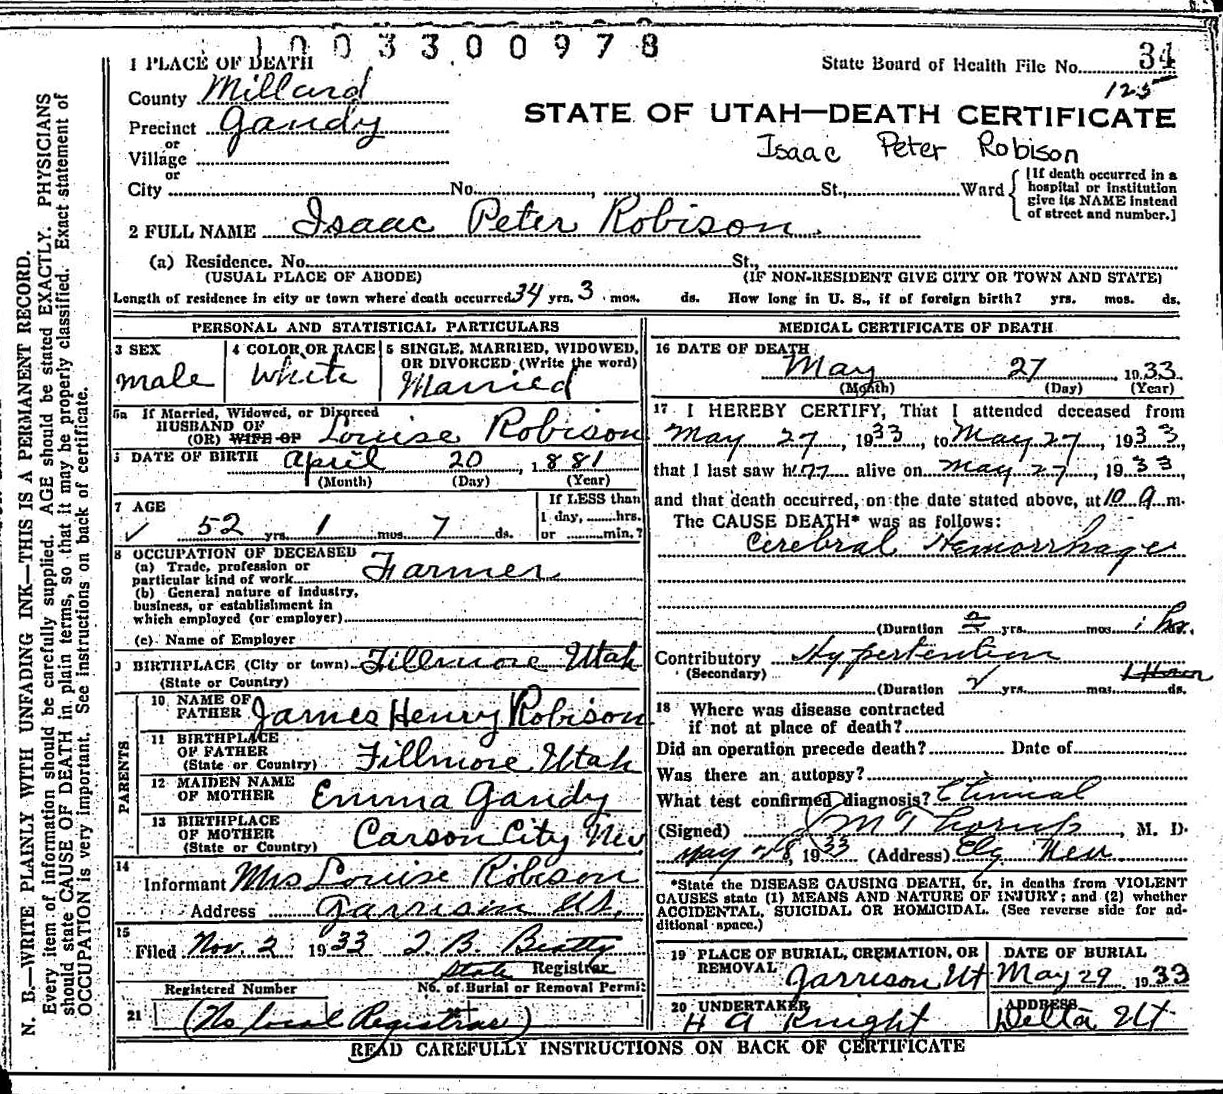 1003300978
1 PLACE OF DEATH
State Board of Health File No. 34
125
County Millard
STATE OF UTAH—DEATH CERTIFICATE
Precinct Gandy
or
Village
Isaac Peter Robison
or
City No. , St., Ward
[If death occurred in a
hospital or institution
give its NAME instead
of street and number.]
2 FULL NAME Isaac Peter Robison.
(a) Residence. No. St.,
(USUAL PLACE OF ABODE) (IF NON-RESIDENT GIVE CITY OR TOWN AND STATE)
Length of residence in city or town where death occurred 34 yrs. 3 mos. ds. How long in U. S., if of foreign birth? yrs. mos. ds.
PERSONAL AND STATISTICAL PARTICULARS
3 SEX
male
4 COLOR OR RACE
White
5 SINGLE, MARRIED, WIDOWED,
OR DIVORCED (Write the word)
Married
5a If Married, Widowed, or Divorced
HUSBAND OF
(OR) WIFE OF Louise Robison
DATE OF BIRTH April 20, 1881
(Month) (Day) (Year)
7 AGE
52 yrs. 1 mos. 7 ds.
If LESS than
1 day, hrs.
or min.?
8 OCCUPATION OF DECEASED
(a) Trade, profession or
particular kind of work Farmer
(b) General nature of industry,
business, or establishment in
which employed (or employer)
(c) Name of Employer
BIRTHPLACE (City or town) Fillmore Utah
(State or Country)
PARENTS
10 NAME OF
FATHER James Henry Robison
11 BIRTHPLACE
OF FATHER Fillmore Utah
(State or Country)
12 MAIDEN NAME
OF MOTHER Emma Gandy
13 BIRTHPLACE
OF MOTHER Carson City Nev
(State or Country)
14
Informant Mrs Louise Robison
Address Garrison Ut.
15
Filed Nov. 2 1933 Beatty
State Registrar
Registered Number No. of Burial or Removal Permit
21 (No local Registrar)
MEDICAL CERTIFICATE OF DEATH
16 DATE OF DEATH
May 27 1933
(Month) (Day) (Year)
17 I HEREBY CERTIFY, That I attended deceased from
May 27, 1933, to May 27, 1933,
that I last saw h'm alive on May 27, 1933
and that death occurred, on the date stated above, at 10 a m.
The CAUSE DEATH* was as follows:
Cerebral Hemorrhage
(Duration yrs. mos. 1 hr.
Contributory Hypertention
(Secondary) 1 Hour
(Duration yrs. mos. ds.
18 Where was disease contracted
if not at place of death?
Did an operation precede death? Date of
Was there an autopsy?
What test confirmed diagnosis? Clinical
(Signed) , M. D.
May 28, 1933 (Address) Ely Nev
*State the DISEASE CAUSING DEATH, or, in deaths from VIOLENT
CAUSES state (1) MEANS AND NATURE OF INJURY; and (2) whether
ACCIDENTAL, SUICIDAL OR HOMICIDAL. (See reverse side for ad-
ditional space.)
19 PLACE OF BURIAL, CREMATION, OR
REMOVAL Garrison Ut
DATE OF BURIAL
May 29 1933
20 UNDERTAKER
H A Knight
ADDRESS
Delta Ut
READ CAREFULLY INSTRUCTIONS ON BACK OF CERTIFICATE
N. B.—WRITE PLAINLY WITH UNFADING INK—THIS IS A PERMANENT RECORD.
Every item of information should be carefully supplied. AGE should be stated EXACTLY. PHYSICIANS
should state CAUSE OF DEATH in plain terms, so that it may be properly classified. Exact statement of
OCCUPATION is very important. See instructions on back of certificate.